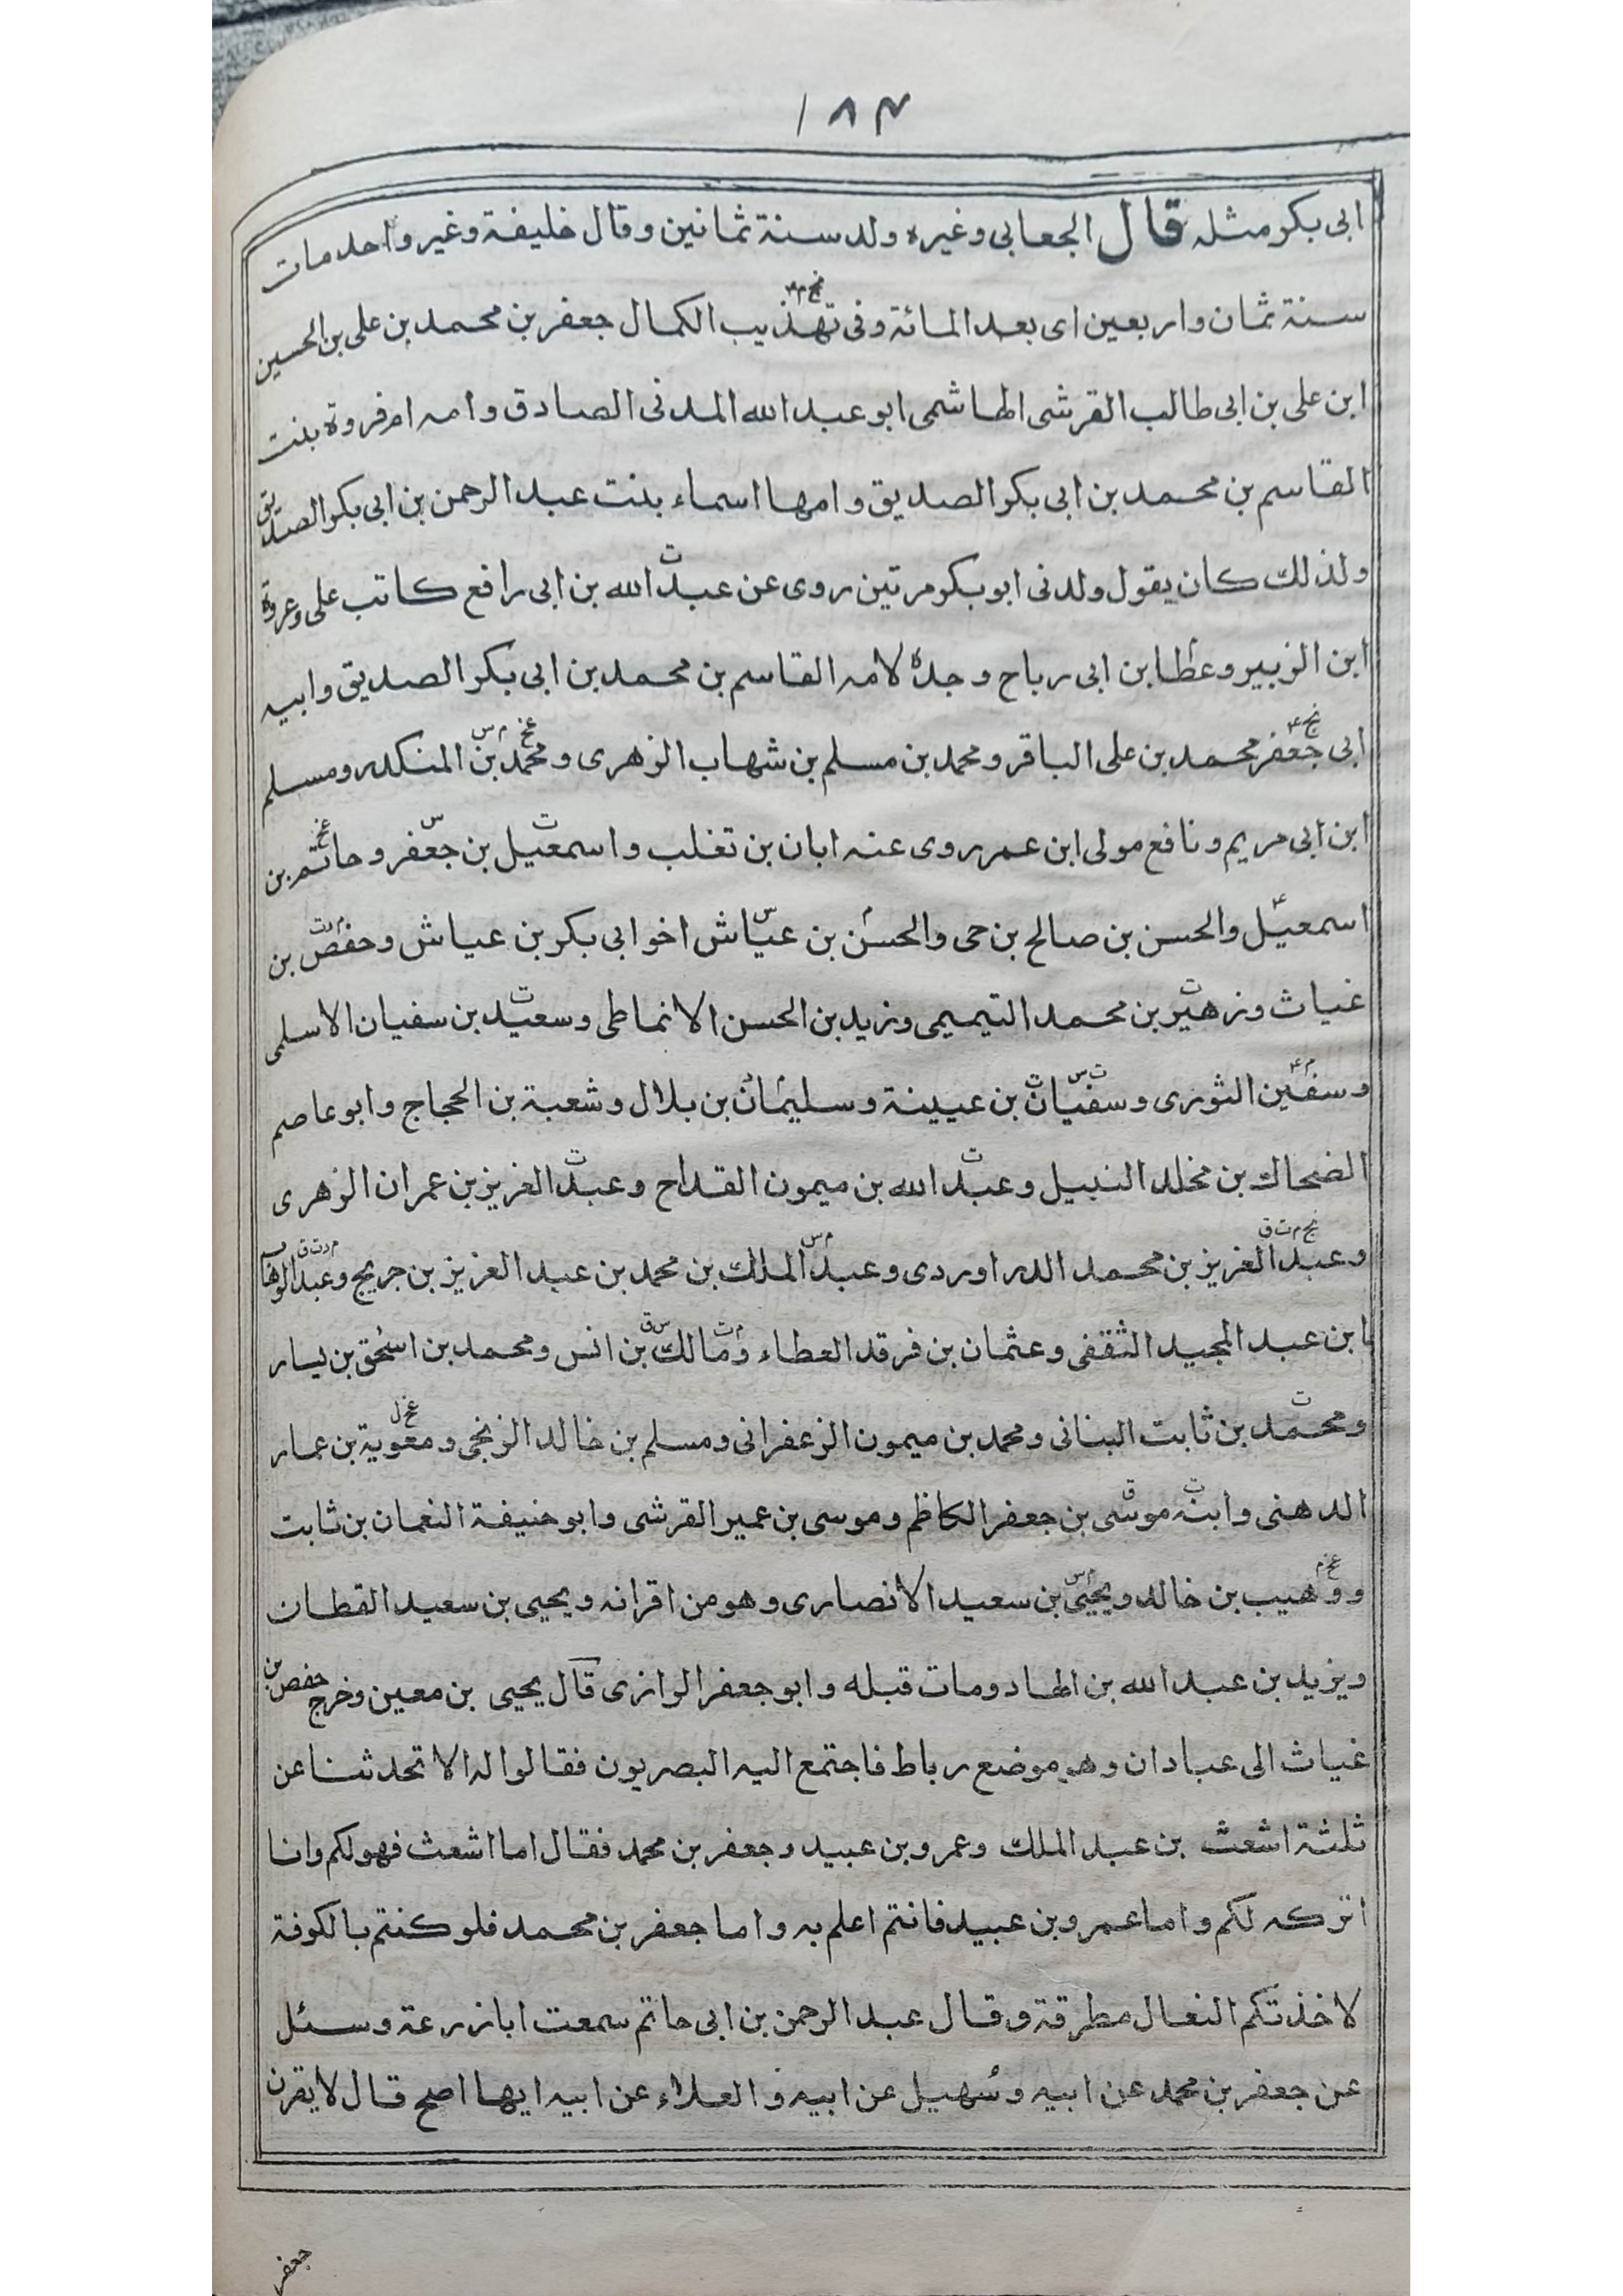 ۱۸۴
ابى بكر مثله قال الجعابى وغيره ولد سنة ثمانين وقال خليفة وغير واحد مات
سنة ثمان واربعين اى بعد المائة وفى تهذيب الكمال جعفر بن محمد بن على بن الحسين
ابن على بن ابى طالب القرشى الهاشمى ابو عبد الله المدنى الصادق وامه ام فروة بنت
القاسم بن محمد بن ابى بكر الصديق وامها اسماء بنت عبد الرحمن بن ابى بكر الصديق
ولذلك كان يقول ولدنى ابو بكر مرتين روى عن عبد الله بن ابى رافع كاتب على وعروة
ابن الزبير وعطا بن ابى رباح وجده لامه القاسم بن محمد بن ابى بكر الصديق وابيه
ابى جعفر محمد بن على الباقر ومحمد بن مسلم بن شهاب الزهرى ومحمد بن المنكدر ومسلم
ابن ابى مريم ونافع مولى ابن عمر روى عنه ابان بن تغلب واسمعيل بن جعفر وحاتم بن
اسمعيل والحسن بن صالح بن حى والحسن بن عياش اخو ابى بكر بن عياش وحفص بن
غياث وزهير بن محمد التيميمى وزيد بن الحسن الانماطى وسعيد بن سفيان الاسلمى
وسفين الثورى وسفيان بن عيينة وسليمان بن بلال وشعبة بن الحجاج وابو عاصم
الضحاك بن مخلد النبيل وعبد الله بن ميمون القداح وعبد العزيز بن عمران الزهرى
وعبد العزيز بن محمد الدراوردى وعبد الملك بن محمد بن عبد العزيز بن جريج وعبد الوهاب
ابن عبد المجيد الثقفى وعثمان بن فرقد العطاء ومالك بن انس ومحمد بن اسحق بن يسار
ومحمد بن ثابت البنانى ومحمد بن ميمون الزعفرانى ومسلم بن خالد الزنجى ومعوية بن عمار
الدهنى وابنه موسى بن جعفر الكاظم وموسى بن عمير القرشى وابو حنيفة النعمان بن ثابت
ووهيب بن خالد ويحيى بن سعيد الانصارى وهو من اقرانه ويحيى بن سعيد القطان
ويزيد بن عبد الله بن الهاد ومات قبله وابو جعفر الرازى قال يحيى بن معين وخرج حفص بن
غياث الى عبادان وهو موضع رباط فاجتمع اليه البصريون فقالوا له الا تحدثنا عن
ثلثة اشعث بن عبد الملك وعمرو بن عبيد وجعفر بن محمد فقال اما اشعث فهو لكم وانا
اتركه لكم واما عمرو بن عبيد فانتم اعلم به واما جعفر بن محمد فلو كنتم بالكوفة
لاخذتكم النعال مطرقة وقال عبد الرحمن بن ابى حاتم سمعت ابا زرعة وسئل
عن جعفر بن محمد عن ابيه وسهيل عن ابيه والعلاء عن ابيه ايها اصح قال لا يقرن
جعفر